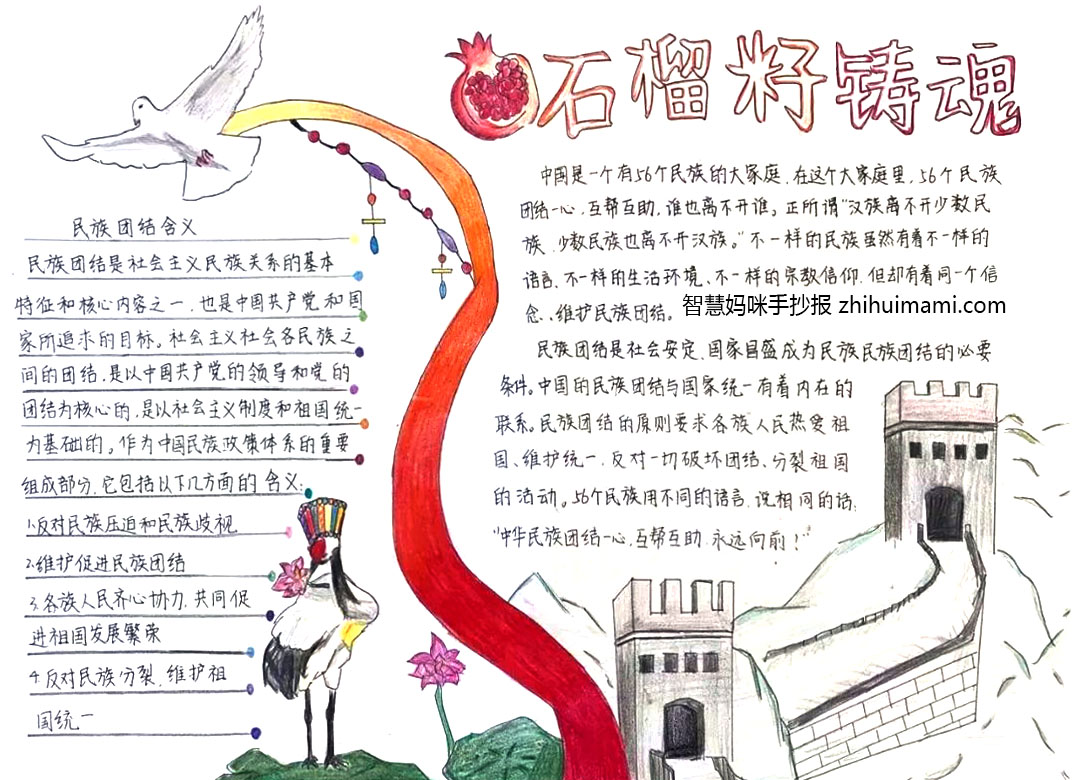 石榴籽铸魂
民族团结含义
民族团结是社会主义民族关系的基本
特征和核心内容之一,也是中国共产党和国
家所追求的目标。社会主义社会各民族之
间的团结,是以中国共产党的领导和党的
团结为核心的,是以社会主义制度和祖国统一
为基础的。作为中国民族政策体系的重要
组成部分,它包括以下几方面的含义:
1.反对民族压迫和民族歧视
2.维护促进民族团结
3.各族人民齐心协力,共同促
进祖国发展繁荣
4.反对民族分裂,维护祖
国统一
中国是一个有56个民族的大家庭,在这个大家庭里,56个民族
团结一心,互帮互助,谁也离不开谁。正所谓"汉族离不开少数民
族,少数民族也离不开汉族。"不一样的民族虽然有着不一样的
语言、不一样的生活环境、不一样的宗教信仰,但却有着同一个信
念、维护民族团结。
智慧妈咪手抄报 zhihuimami.com
民族团结是社会安定、国家昌盛成为民族民族团结的必要
条件。中国的民族团结与国家统一有着内在的
联系。民族团结的原则要求各族人民热爱祖
国、维护统一,反对一切破坏团结、分裂祖国
的活动。56个民族用不同的语言,说相同的话:
"中华民族团结一心,互帮互助,永远向前!"